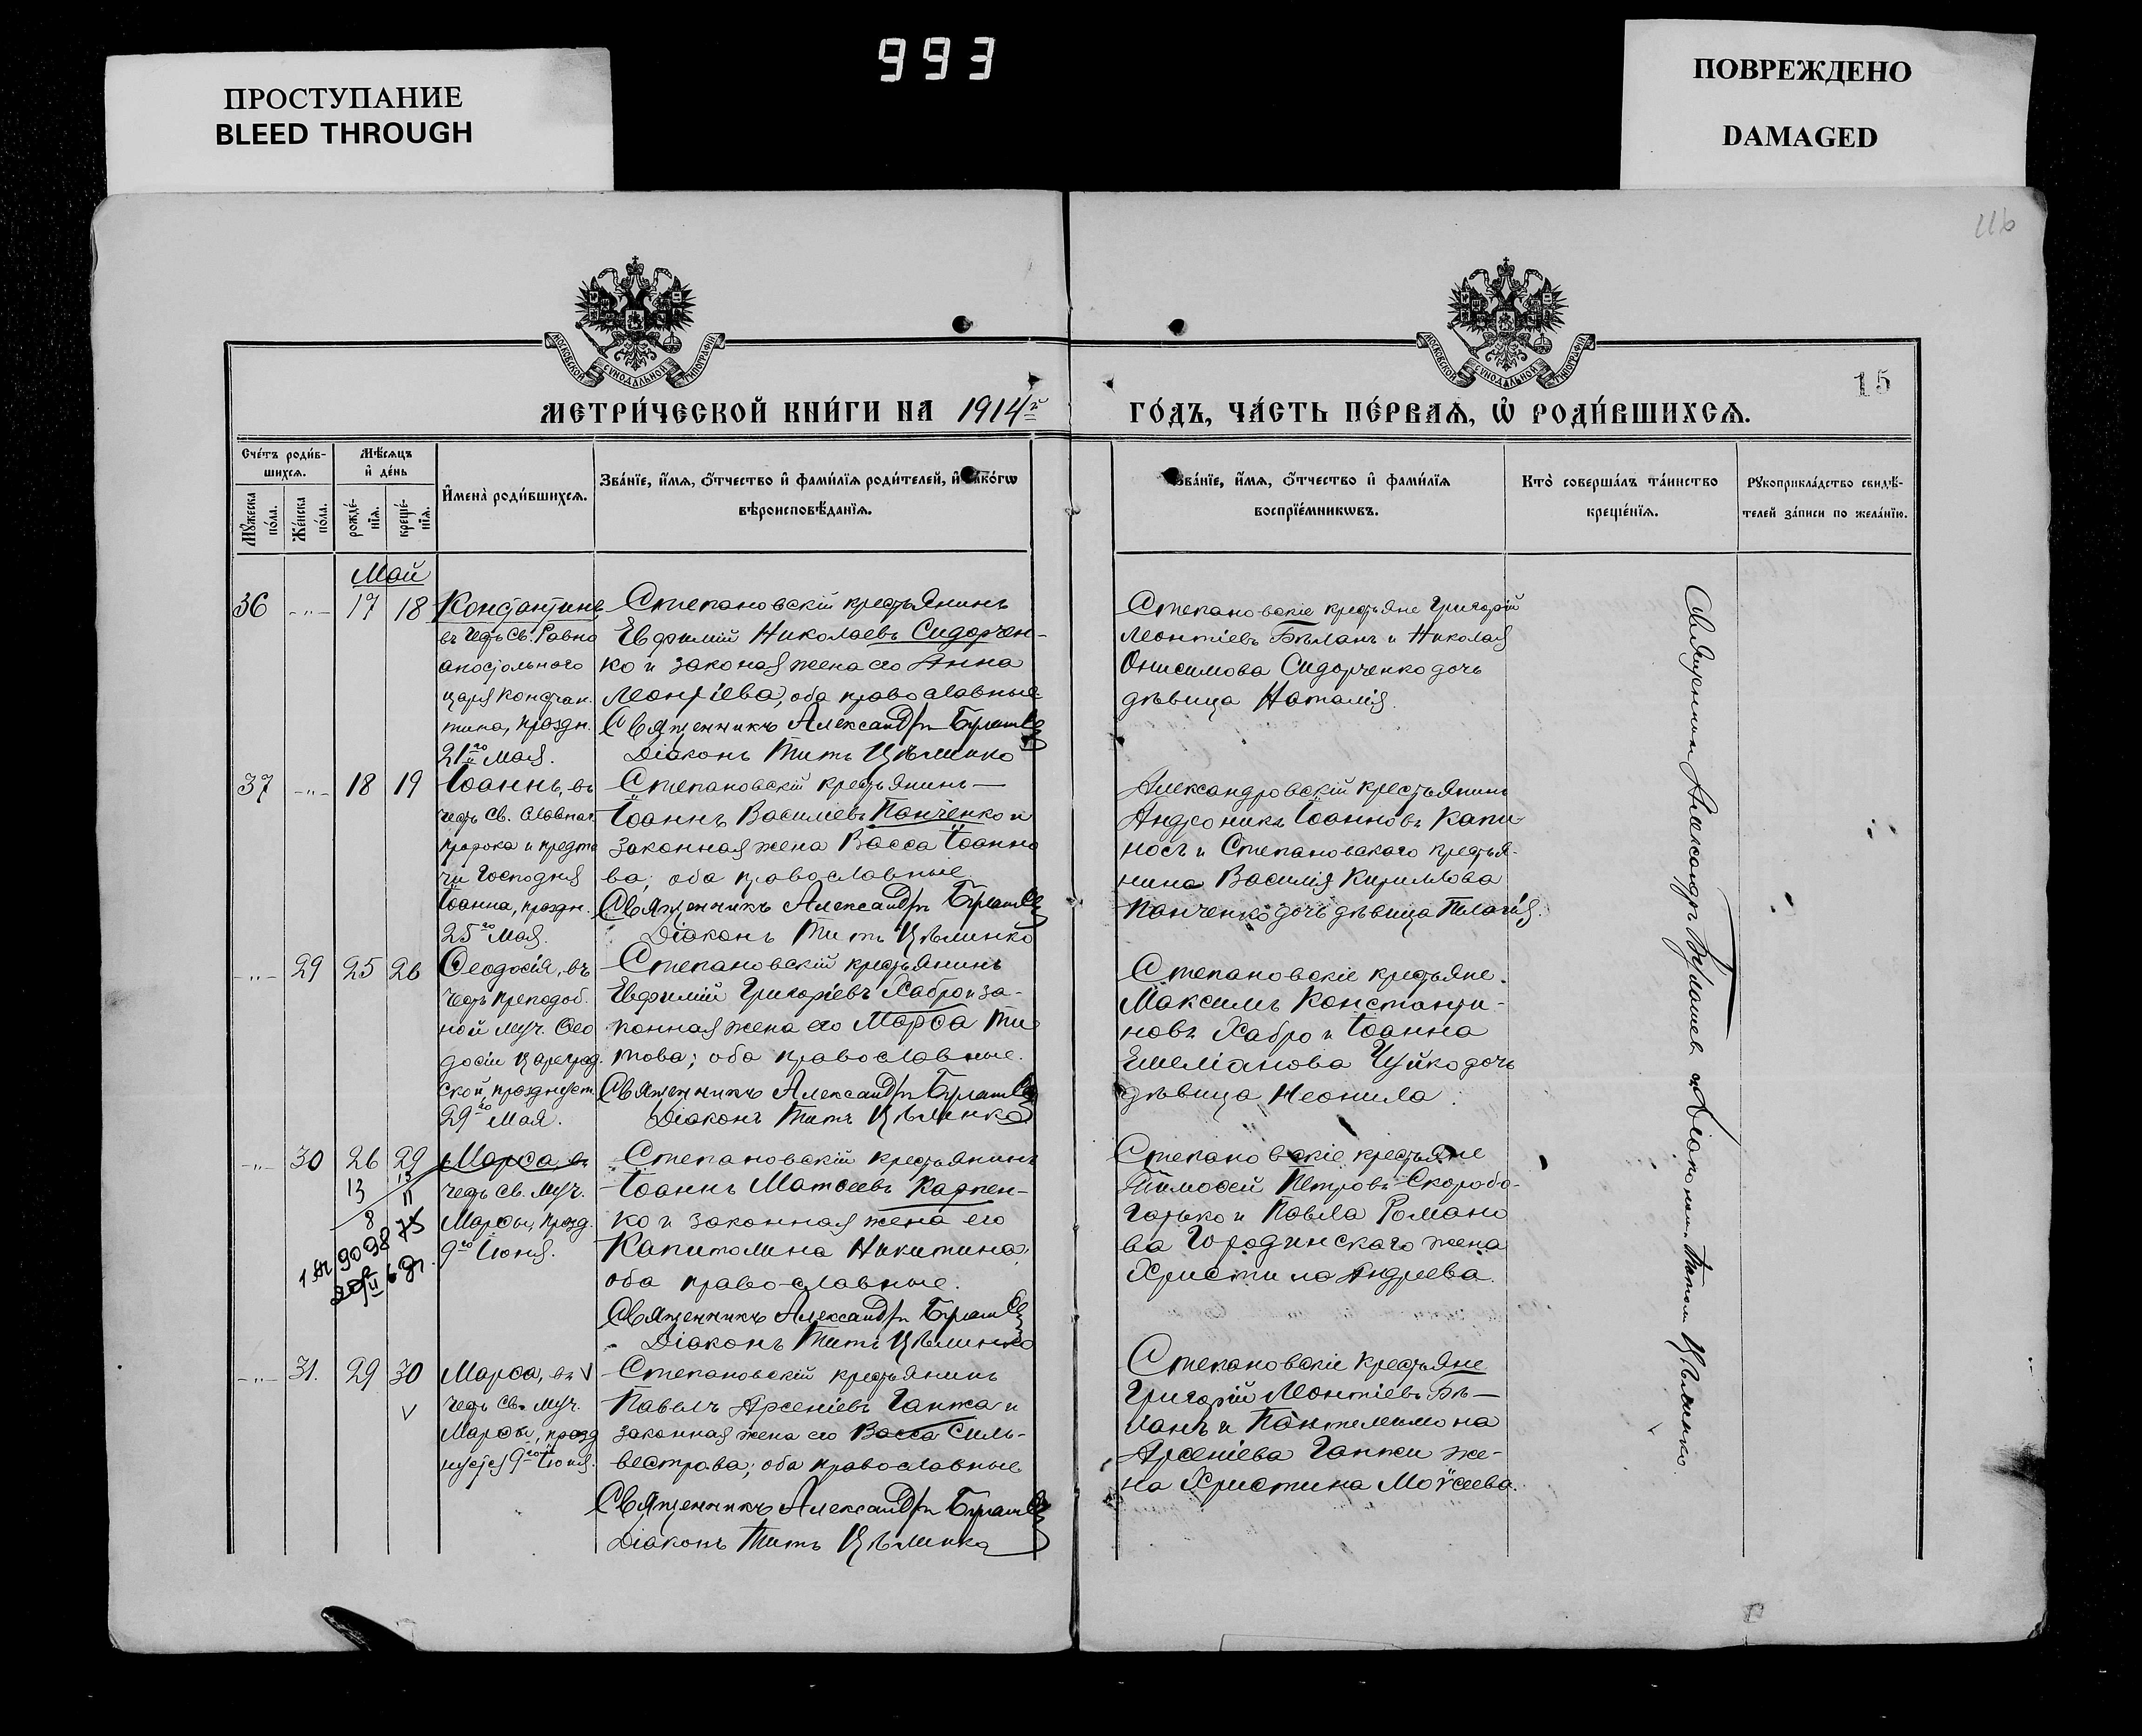 993
ПРОСТУПАНИЕ
BLEED THROUGH
ПОВРЕЖДЕНО
DAMAGED
116
15
МОСКОВСКОЙ СУНОДАЛЬНОЙ ТИПОГРАФІИ
МОСКОВСКОЙ СУНОДАЛЬНОЙ ТИПОГРАФІИ
МЕТРИ́ЧЕСКОЙ КНИ́ГИ НА 1914й
ГО́ДЪ, ЧА́СТЬ ПЕ́РВАѦ, Ѡ҆ РОДИ́ВШИХСѦ.
Сче́тъ роди́в-
шихсѧ.
Мѹ́жеска по́ла.
Же́нска по́ла.
Мѣ́сѧцъ
и҆ де́нь
рожде́-
нїѧ.
креще́-
нїѧ.
И҆мена̀ роди́вшихсѧ.
Зва́нїе, и҆́мѧ, ѻ҆́тчество и҆ фами́лїѧ роди́телей, и҆ како́гѡ
вѣроисповѣ́данїѧ.
Зва́нїе, и҆́мѧ, ѻ҆́тчество и҆ фами́лїѧ
воспрїе́мникѡвъ.
Кто̀ соверша́лъ та́инство
креще́нїѧ.
Рꙋкоприкла́дство свидѣ́-
телей за́писи по жела́нїю.
Май
36 -„- 17 18
Константинъ
въ честь св. Равно
апостольного
царя Констан-
тина, праздн.
21го Мая.
Степановскій крестьянинъ
Евфимій Николаевъ Сидорчен-
ко и законая жена его Анна
Леонтіева; оба православные
Священникъ Александръ
Діаконъ Титъ Цѣлинко
Степановскіе крестьяне Григорій
Леонтіевъ Бѣланъ и Николая
Онисимова Сидорченко дочь
дѣвица Наталія.
37 -„- 18 19
Іоаннъ, въ
честь св. славнаг.
пророка и предте
чи Господня
Іоанна, праздн.
25го Мая.
Степановскій крестьянинъ
Іоаннъ Василіевъ Панченко и
законная жена Васса Іоанно
ва; оба православные
Священникъ Александръ
Діаконъ Титъ Цѣлинко
Александровскій крестьянинъ
Андроникъ Іоанновъ Капи
носъ и Степановскаго крестья-
нина Василія Кириллова
Панченко дочь дѣвица Пелагія.
-„- 29 25 26
Ѳеодосія, въ
честь преподоб.
ной муч. Ѳео
досіи Цареград.
ской, празднует.
29го Мая.
Степановскій крестьянинъ
Евфимій Григоріевъ Хабро и за-
конная жена его Марѳа Ти
това; оба православные.
Священникъ Александръ
Діаконъ Титъ Цѣлинко
Степановскіе крестьяне
Максимъ Константи-
новъ Хабро и Іоанна
Емеліанова Чуйко дочь
дѣвица Неонила.
-„- 30 26 29
Марѳа, въ
честь св. муч.
Марѳы, празд.
9го Іюня.
13 11
8
Степановскій крестьянинъ
Іоаннъ Матѳеевъ Карпен-
ко и законная жена его
Капитолина Никитина;
оба православные.
Священникъ Александръ
Діаконъ Титъ Цѣлинко
Степановскіе крестьяне
Тимоѳей Петровъ Скоробо-
гатько и Павла Романо
ва Городинскаго жена
Христина Андреева.
-„- 31. 29 30
Марѳа, въ
честь св. муч.
Марѳы, празд
нуется 9го Іюня.
Степановскій крестьянинъ
Павелъ Арсеніевъ Ганжа и
законная жена его Васса Силь-
вестрова; оба православные
Священникъ Александръ
Діаконъ Титъ Цѣлинко
Степановскіе крестьяне
Григорій Леонтіевъ Бѣ-
ланъ и Пантелимона
Арсеніева Ганжи же-
на Христина Моѵсеева.
Священникъ Александръ и Діакономъ Титомъ Цѣлинко.